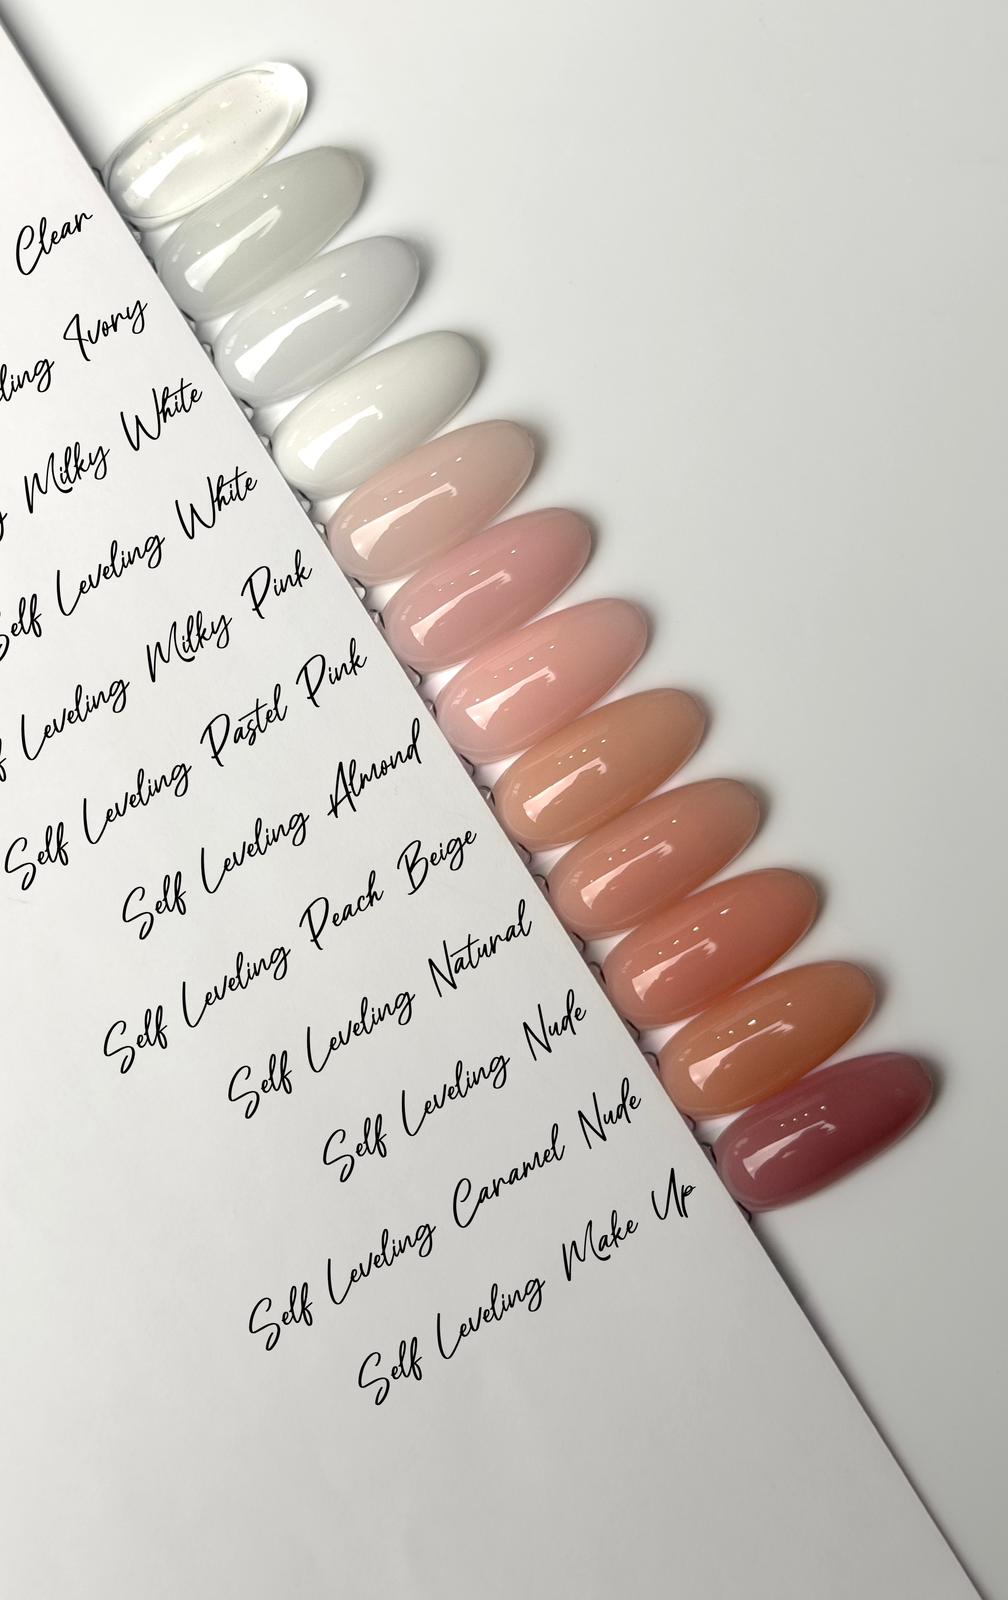 Clear
Ivory
Milky White
Self Leveling White
Leveling Milky Pink
Self Leveling Pastel Pink
Self Leveling Almond
Self Leveling Peach Beige
Self Leveling Natural
Self Leveling Nude
Self Leveling Caramel Nude
Self Leveling Make Up